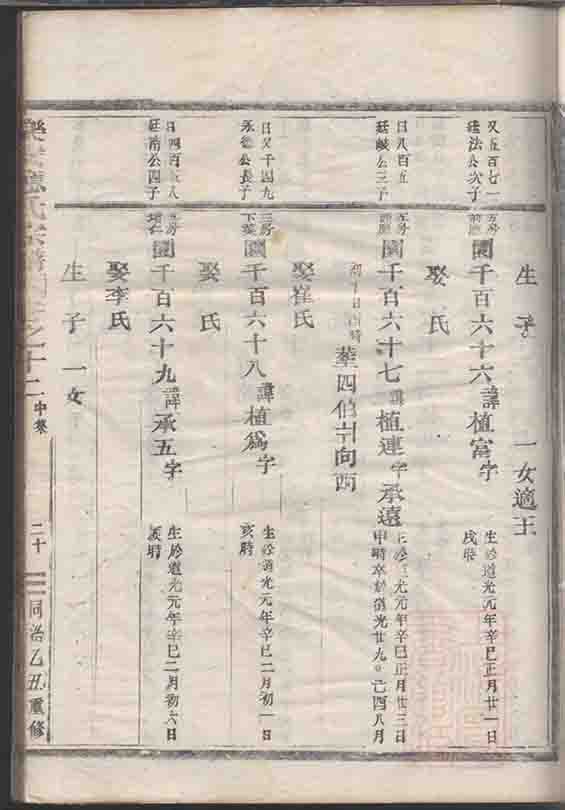 生子 一女適王
又五百七一
廷法公次子
園千百六十六諱植富字
生於道光元年辛巳正月廿一日
戌時
娶 氏
日八百五
廷 公三子
園千百六十七諱植連字承遠
光元年辛巳正月廿三日
申時卒於道光廿九 己酉八月
初十日酉時
葬四伯 向西
娶崔氏
日又千四九
永 公長子
三房
園千百六十八諱植為字
生於道光元年辛巳二月初一日
亥時
娶 氏
日四百五八
廷南公四子
園千百六十九諱承五字
生於道光元年辛巳二月初六日
辰時
娶李氏
生子 一女
氏宗譜 之十二 中集
二十
同治乙丑重修